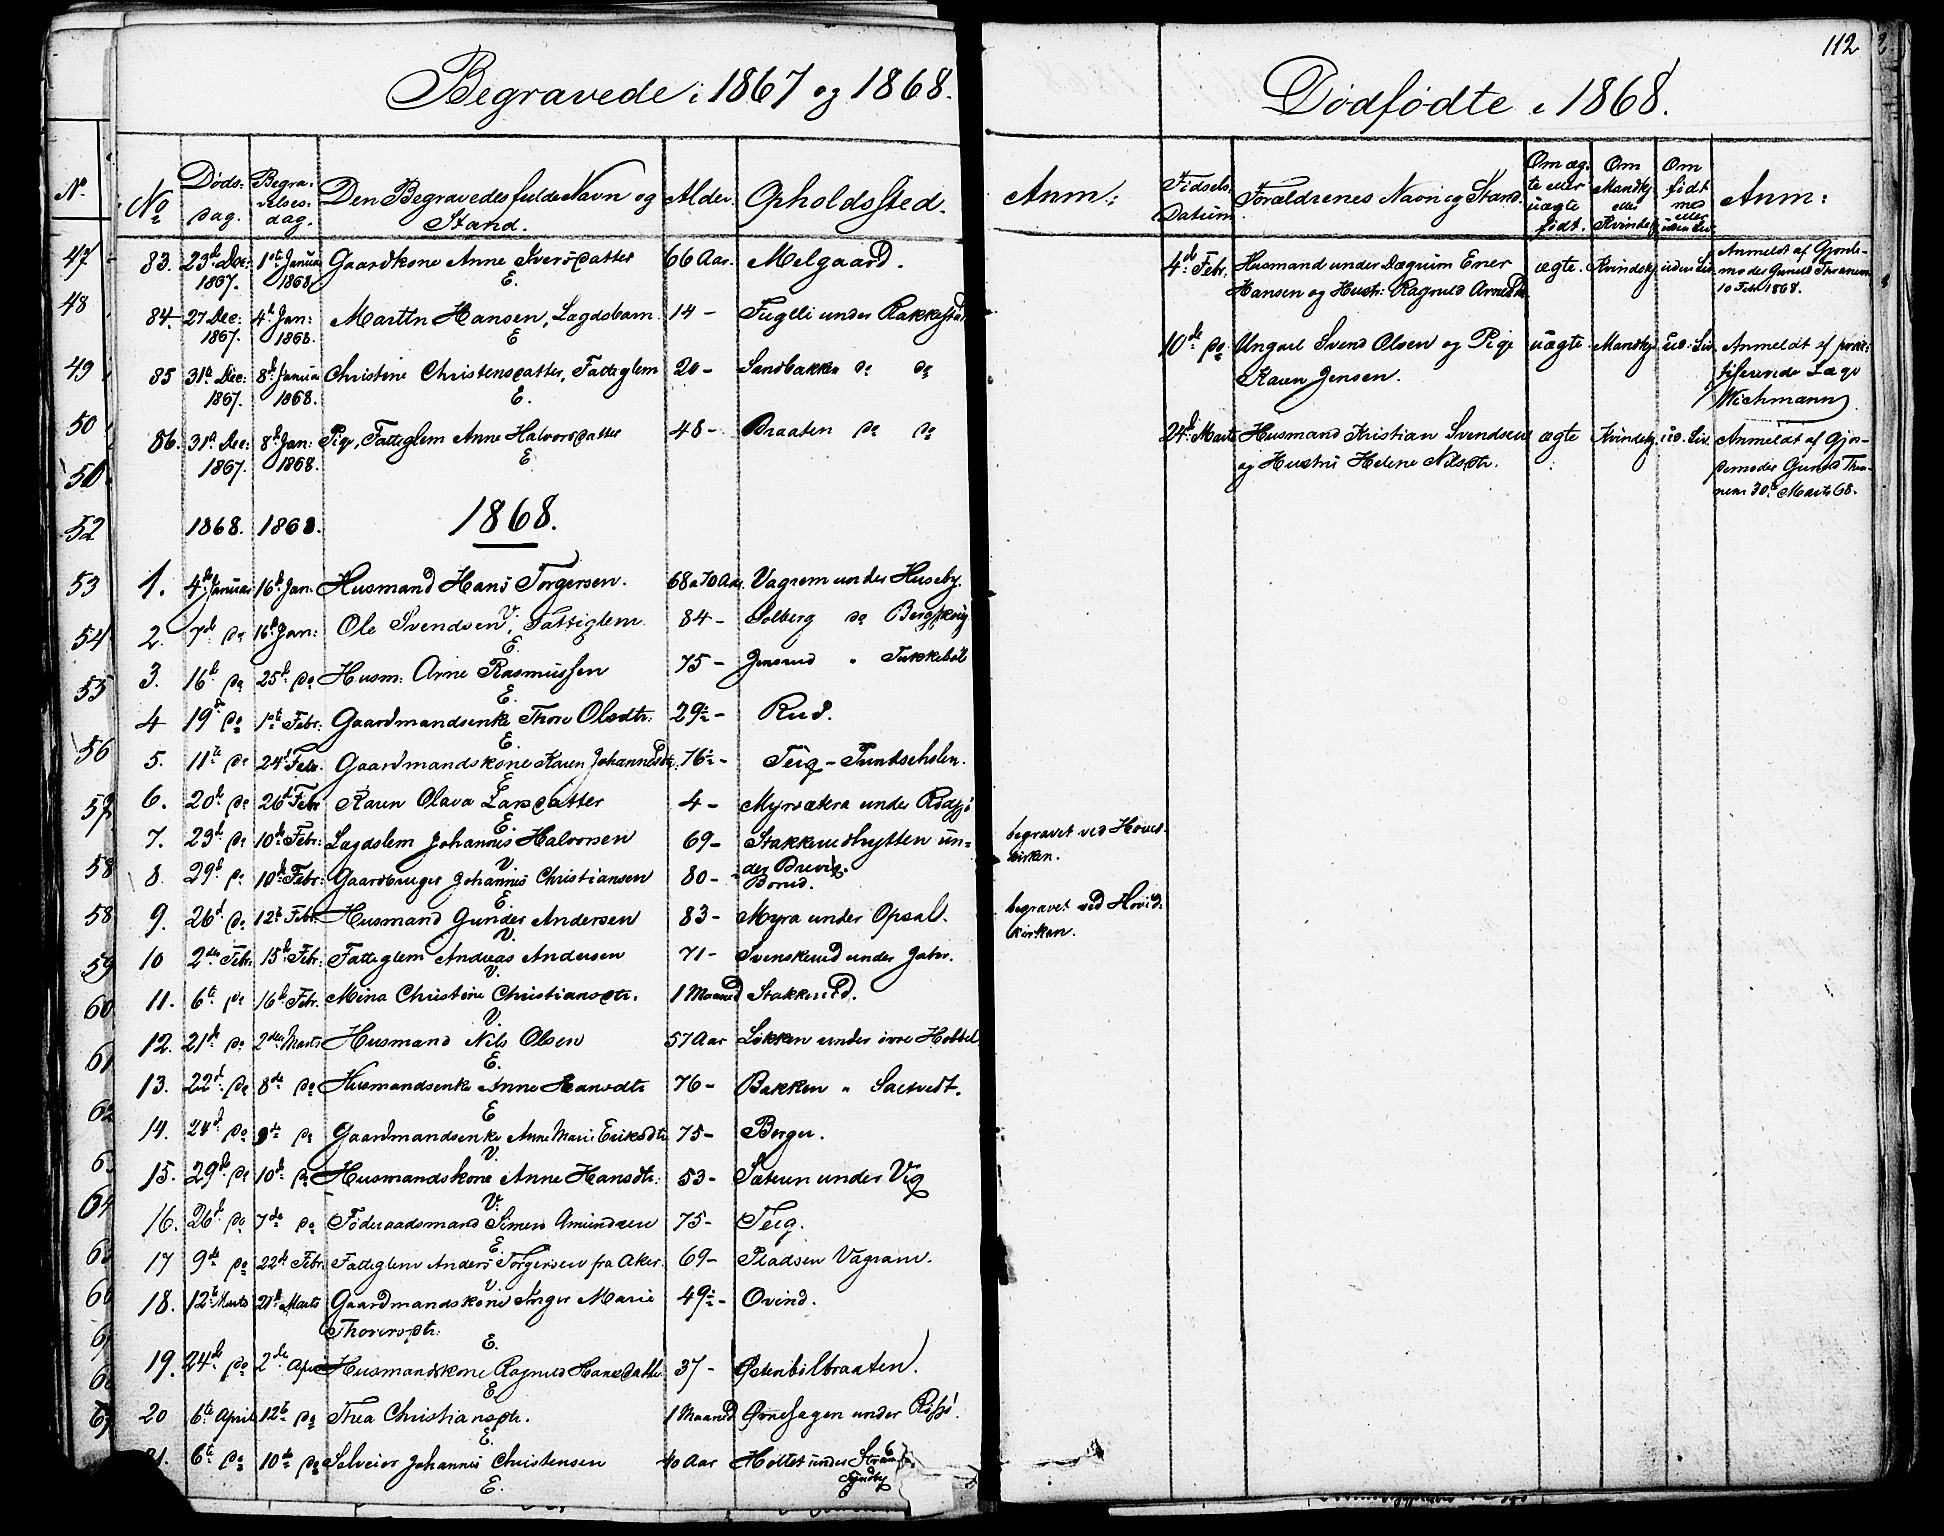 Begravede i 1867 og 1868.
No Døds- dag. Begra- velses- dag. Den Begravedes fulde Navn og Stand. Alder. Opholdssted. Anm:
83. 23de Dec: 1867. 1ste Januar 1868. Gaardkone Anne Iversdatter 66 Aar. Melgaard.
E.
84. 27 Dec: 1867. 4de Jan: 1868. Martin Hansen, Lægdsbarn 14 - Fuglli under Rakkestad
E
85 31te Dec: 1867. 8de Januar 1868. Christine Christensdatter, Fattiglem 20 - Sandbakken do do
E.
86. 31te Dec: 1867. 8de Jan: 1868. Pige, Fattiglem Anne Halvorsdatter 48 - Braaten do do
E
1868. 1868. 1868.
1. 4de Januar 16de Jan: Husmand Hans Torgersen. 68 a 70 Aar. Vagrem under Huseby.
V.
2. 7de do 16de Jan: Ole Svendsen, Fattiglem. 84 - Solberg do
E.
3. 16de do 25de do Husm: Arne Rasmussen 75 - under
E.
4 19de do 1ste Febr: Gaardmandsenke Thore Olsdtr. 29½ - Rud.
E.
5. 11te do 24de Febr. Gaardmandskone Karen Johannesdtr. 76½ - Teig -
E
6. 20de do 26de Febr Karen Olava Larsdatter 4 - Myrsætra under
E.
7. 23de do 10de Febr: Lægdslem Johannes Halvorsen 69 - Stakkerudhytten un- der Brevig. begravet ved Hovid- kirken.
V.
8. 29de do 10de Febr: Gaardbruger Johannes Christiansen 80 - Borud.
E.
9. 26de do 12te Febr. Husmand Gunder Andersen 83 - Myra under Opsal. begravet ved Hovid- kirken.
V.
10 2den Febr. 15de Febr: Fattiglem Andreas Andersen 71 - Svenskerud under
V.
11. 6te do 16de Febr. Mina Christine Christiansdtr. 1 Maaned Stakkerud.
V.
12. 21de do 2den Marts Husmand Nils Olsen 57 Aar Løkken under øvre Hobbel
E.
13. 22de do 8de do Husmandsenke Anne Hansdtr 76 - Bakken " Sætvedt.
E
14. 24de do 9de do Gaardmandsenke Anne Marie Eriksdtr 75 - Berger.
V.
15. 29de do 10de do Husmandskone Anne Hansdtr: 53 - Sæteren under Vig
V.
16. 26de do 7de do Føderaadsmand Simen Amundsen 75 - Teig.
E.
17 9de do 22de Febr. Fattiglem Anders Torgersen fra Aker. 69 - Pladsen Vagram.
V.
18. 12te Marts 21de Marts Gaardmandskone Inger Marie 49½ - Ovind.
Thoversdtr:
E.
19. 24de do 2den April Husmandskone Ragnild Hansdatter 37 - Østenbølbraaten.
E.
20 6te April 12te do Thea Christiansdtr. 1 Maaned Ørnehagen under
E.
21. 6te do 10de do Selveier Johannes Christensen 40 Aar Holtet under
E.
N.
47
48
49
50
50
52
53
54
55
56
57
58
58
59
60
61
62
64
112
Dødfødte i 1868.
Fødsels- Datum Forældrenes Navn og Stand. Om æg- te eller uægte født. Om Mandkj. eller Kvindekj. Om født med eller uden Liv. Anm:
4de Febr. Husmand under Dægrum Ener
Hansen og Hustr: Ragnild Arnesdtr. ægte. Kvindekj. uden Liv. Anmeldt af Gjorde- moder Gunild Thranem 10 Febr 1868.
10de do Ungkarl Svend Olsen og Pige
Karen Jensen. uægte Mandkj. ud. Liv. Anmeldt af prak- tiserende Læge Wichmann
24de Marts Husmand Kristian Svendsen
og Hustru Helene Nilsdtr. ægte Kvindekj. ud. Liv. Anmeldt af Gjor- demoder Gunild Thra- nem 30te Marts 68.